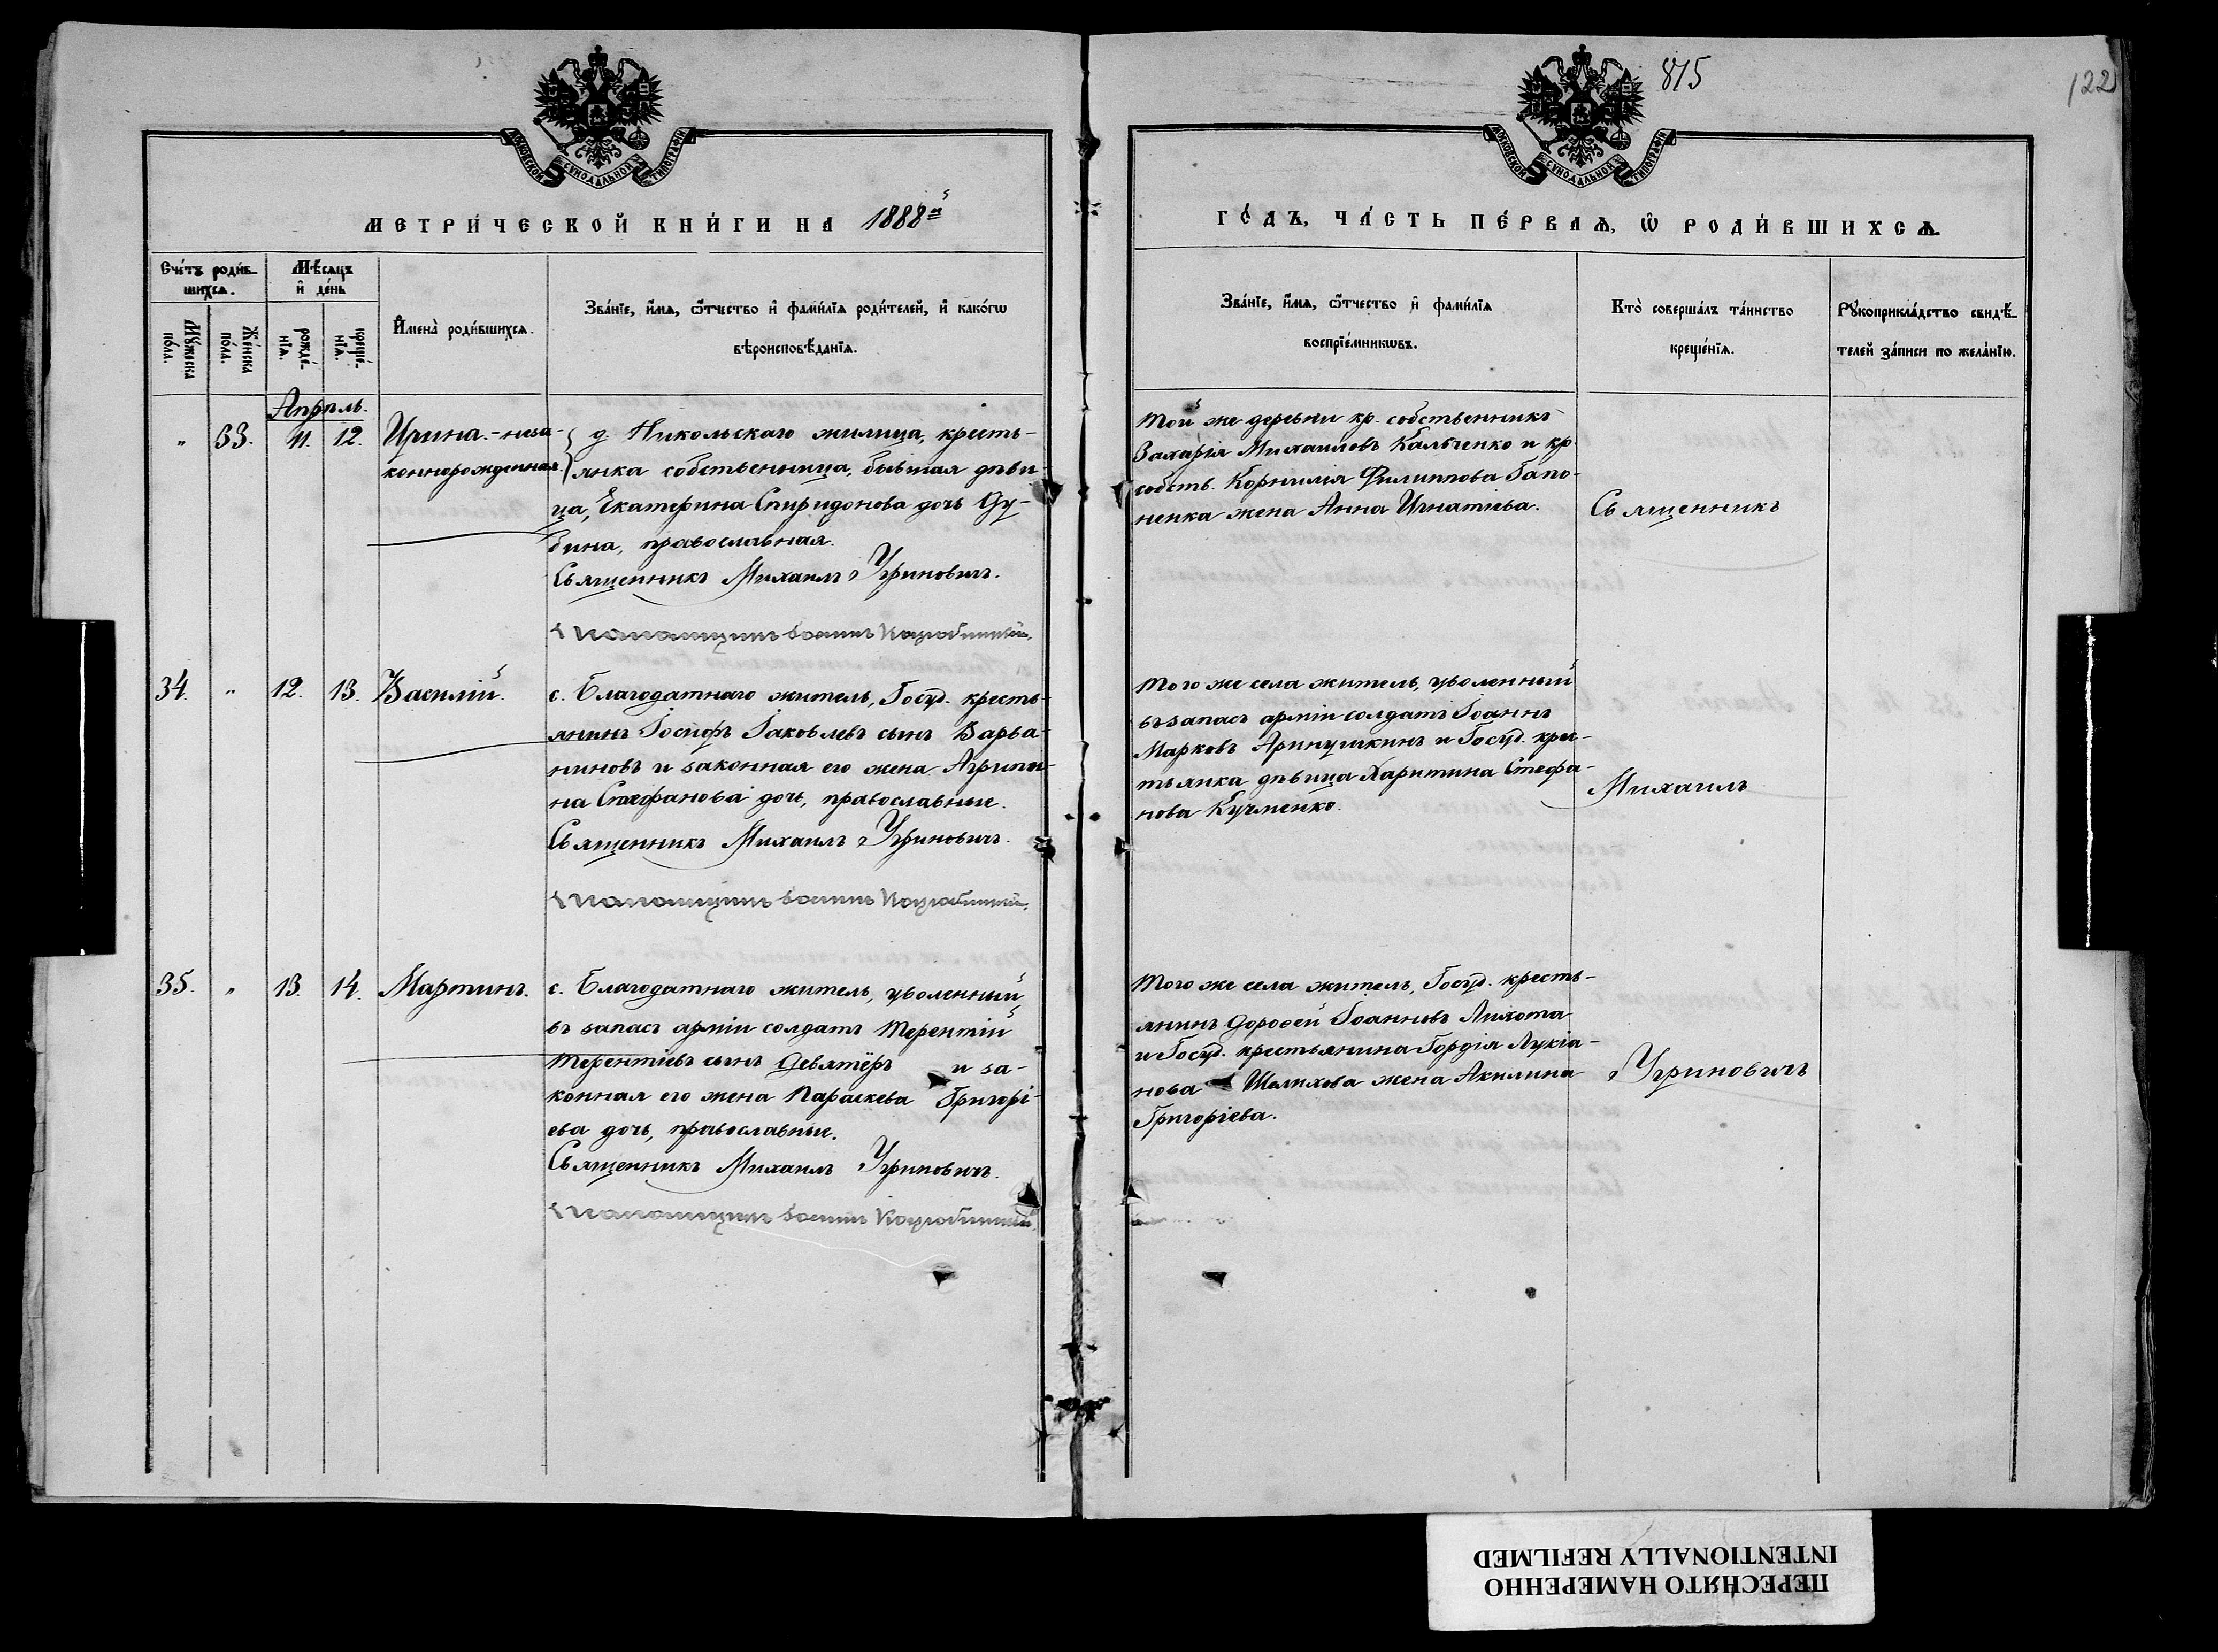 815
122
МОСКОВСКОЙ СѴНОДАЛЬНОЙ ТИПОГРАФІИ
МОСКОВСКОЙ СѴНОДАЛЬНОЙ ТИПОГРАФІИ
МЕТРИ́ЧЕСКОЙ КНИ́ГИ НА 1888й
ГО́ДЪ, ЧА́СТЬ ПЕ́РВАѦ, Ѡ РОДИ́ВШИХСѦ.
Сче́тъ роди́в-
шихсѧ.
Мѣ́сѧцъ
и҆ де́нь
Мꙋ́жеска
по́ла.
Же́нска
по́ла.
рожде́-
нїѧ.
креще́-
нїѧ.
И҆мена̀ роди́вшихсѧ.
Зва́нїе, и҆́мѧ, ѻ҆́тчество и҆ фами́лїѧ роди́телей, и҆ како́гѡ
вѣроисповѣ́данїѧ.
Зва́нїе, и҆́мѧ, ѻ҆́тчество и҆ фами́лїѧ
воспрїе́мникѡвъ.
Кто̀ соверша́лъ та́инство
креще́нїѧ.
Рꙋкоприкла́дство свидѣ́-
телей за́писи по жела́нїю.
Апрѣль.
„ 33. 11. 12. Ирина.-неза-
коннорожденная.
д. Никольскаго жилица, кресть-
янка собственница, бывшая дѣви-
ца, Екатерина Спиридонова дочь Ду-
бина, православная.
Священникъ Михаилъ Угриновичъ.
Псаломщикъ
Той же деревни кр. собственникъ
Захарія Михаиловъ Кальченко и кр.
собств. Корнилія Филиппова Гапо-
ненка жена Анна Игнатіева.
Священникъ
34. „ 12. 13. Василій.
с. Благодатнаго житель, Госуд. кресть-
янинъ Іосифъ Іаковлевъ сынъ Варва-
ниновъ и законная его жена Агрипи-
на Стефанова дочь, православные.
Священникъ Михаилъ Угриновичъ.
Псаломщикъ
Того же села житель, уволенный
въ запасъ арміи солдатъ Іоаннъ
Марковъ Аринушкинъ и Госуд. крес-
тьянка дѣвица Харитина Стефа-
нова Кучменко.
Михаилъ
35. „ 13. 14. Мартинъ.
с. Благодатнаго житель, уволенный
въ запасъ арміи солдатъ Терентій
Терентіевъ сынъ Девятёръ и за-
конная его жена Параскева Григорі-
ева дочь, православные.
Священникъ Михаилъ Угриновичъ.
Псаломщикъ
Того же села житель, Госуд. кресть-
янинъ Дороѳей Іоанновъ Лихота
и Госуд. крестьянина Гордія Лукіа-
нова Шелихова жена Акилина
Григоріева.
Угриновичъ
ПЕРЕСНЯТО НАМЕРЕННО
INTENTIONALLY REFILMED